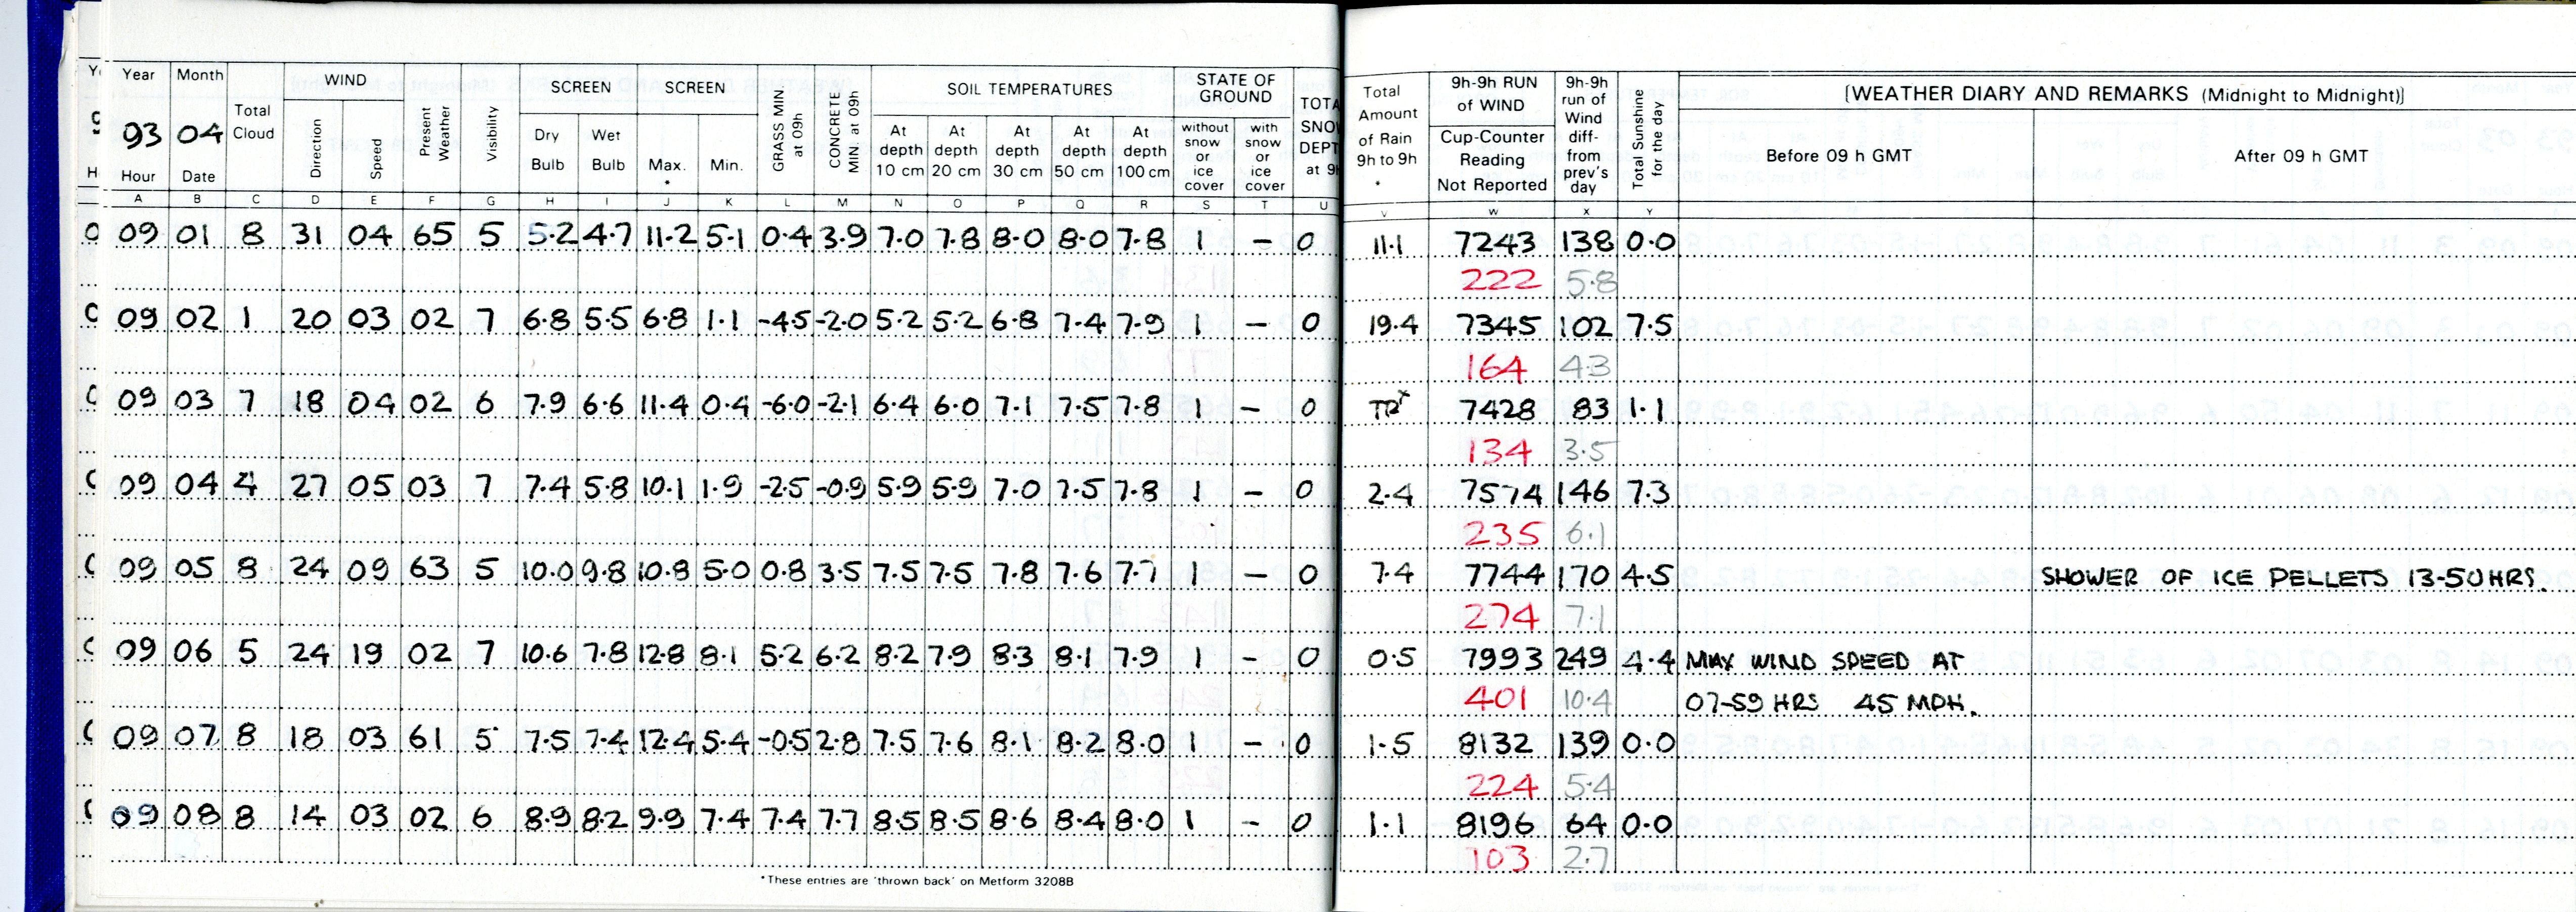 Year Month Total Cloud WIND Present Weather Visibility SCREEN SCREEN GRASS MIN at 09h CONCRETE MIN at 09h SOIL TEMPERATURES STATE OF GROUND Total Amount of Rain 9h to 9h * 9h-9h RUN of WIND 9h-9h run of Wind diff- from prev's day Total Sunshine for the day [WEATHER DIARY AND REMARKS (Midnight to Midnight)]
93 04 Direction Speed Dry Bulb Wet Bulb Max. * Min. At depth 10 cm At depth 20 cm At depth 30 cm At depth 50 cm At depth 100 cm without snow or ice cover with snow or ice cover Cup-Counter Reading Not Reported Before 09 h GMT After 09 h GMT
Hour Date
A B C D E F G H I J K L M N O P Q R S T U V W X Y
09 01 8 31 04 65 5 5.2 4.7 11.2 5.1 0.4 3.9 7.0 7.8 8.0 8.0 7.8 1 – 0 11.1 7243 138 0.0
222 5.8
09 02 1 20 03 02 7 6.8 5.5 6.8 1.1 -4.5 -2.0 5.2 5.2 6.8 7.4 7.9 1 – 0 19.4 7345 102 7.5
164 4.3
09 03 7 18 04 02 6 7.9 6.6 11.4 0.4 -6.0 -2.1 6.4 6.0 7.1 7.5 7.8 1 – 0 TR 7428 83 1.1
134 3.5
09 04 4 27 05 03 7 7.4 5.8 10.1 1.9 -2.5 -0.9 5.9 5.9 7.0 7.5 7.8 1 – 0 2.4 7574 146 7.3
235 6.1
09 05 8 24 09 63 5 10.0 9.8 10.8 5.0 0.8 3.5 7.5 7.5 7.8 7.6 7.7 1 – 0 7.4 7744 170 4.5 SHOWER OF ICE PELLETS 13-50 HRS.
274 7.1
09 06 5 24 19 02 7 10.6 7.8 12.8 8.1 5.2 6.2 8.2 7.9 8.3 8.1 7.9 1 – 0 0.5 7993 249 4.4 MAX WIND SPEED AT
401 10.4 07-59 HRS 45 MPH.
09 07 8 18 03 61 5 7.5 7.4 12.4 5.4 -0.5 2.8 7.5 7.6 8.1 8.2 8.0 1 – 0 1.5 8132 139 0.0
224 5.4
09 08 8 14 03 02 6 8.9 8.2 9.9 7.4 7.4 7.7 8.5 8.5 8.6 8.4 8.0 1 – 0 1.1 8196 64 0.0
103 2.7
*These entries are 'thrown back' on Metform 3208B